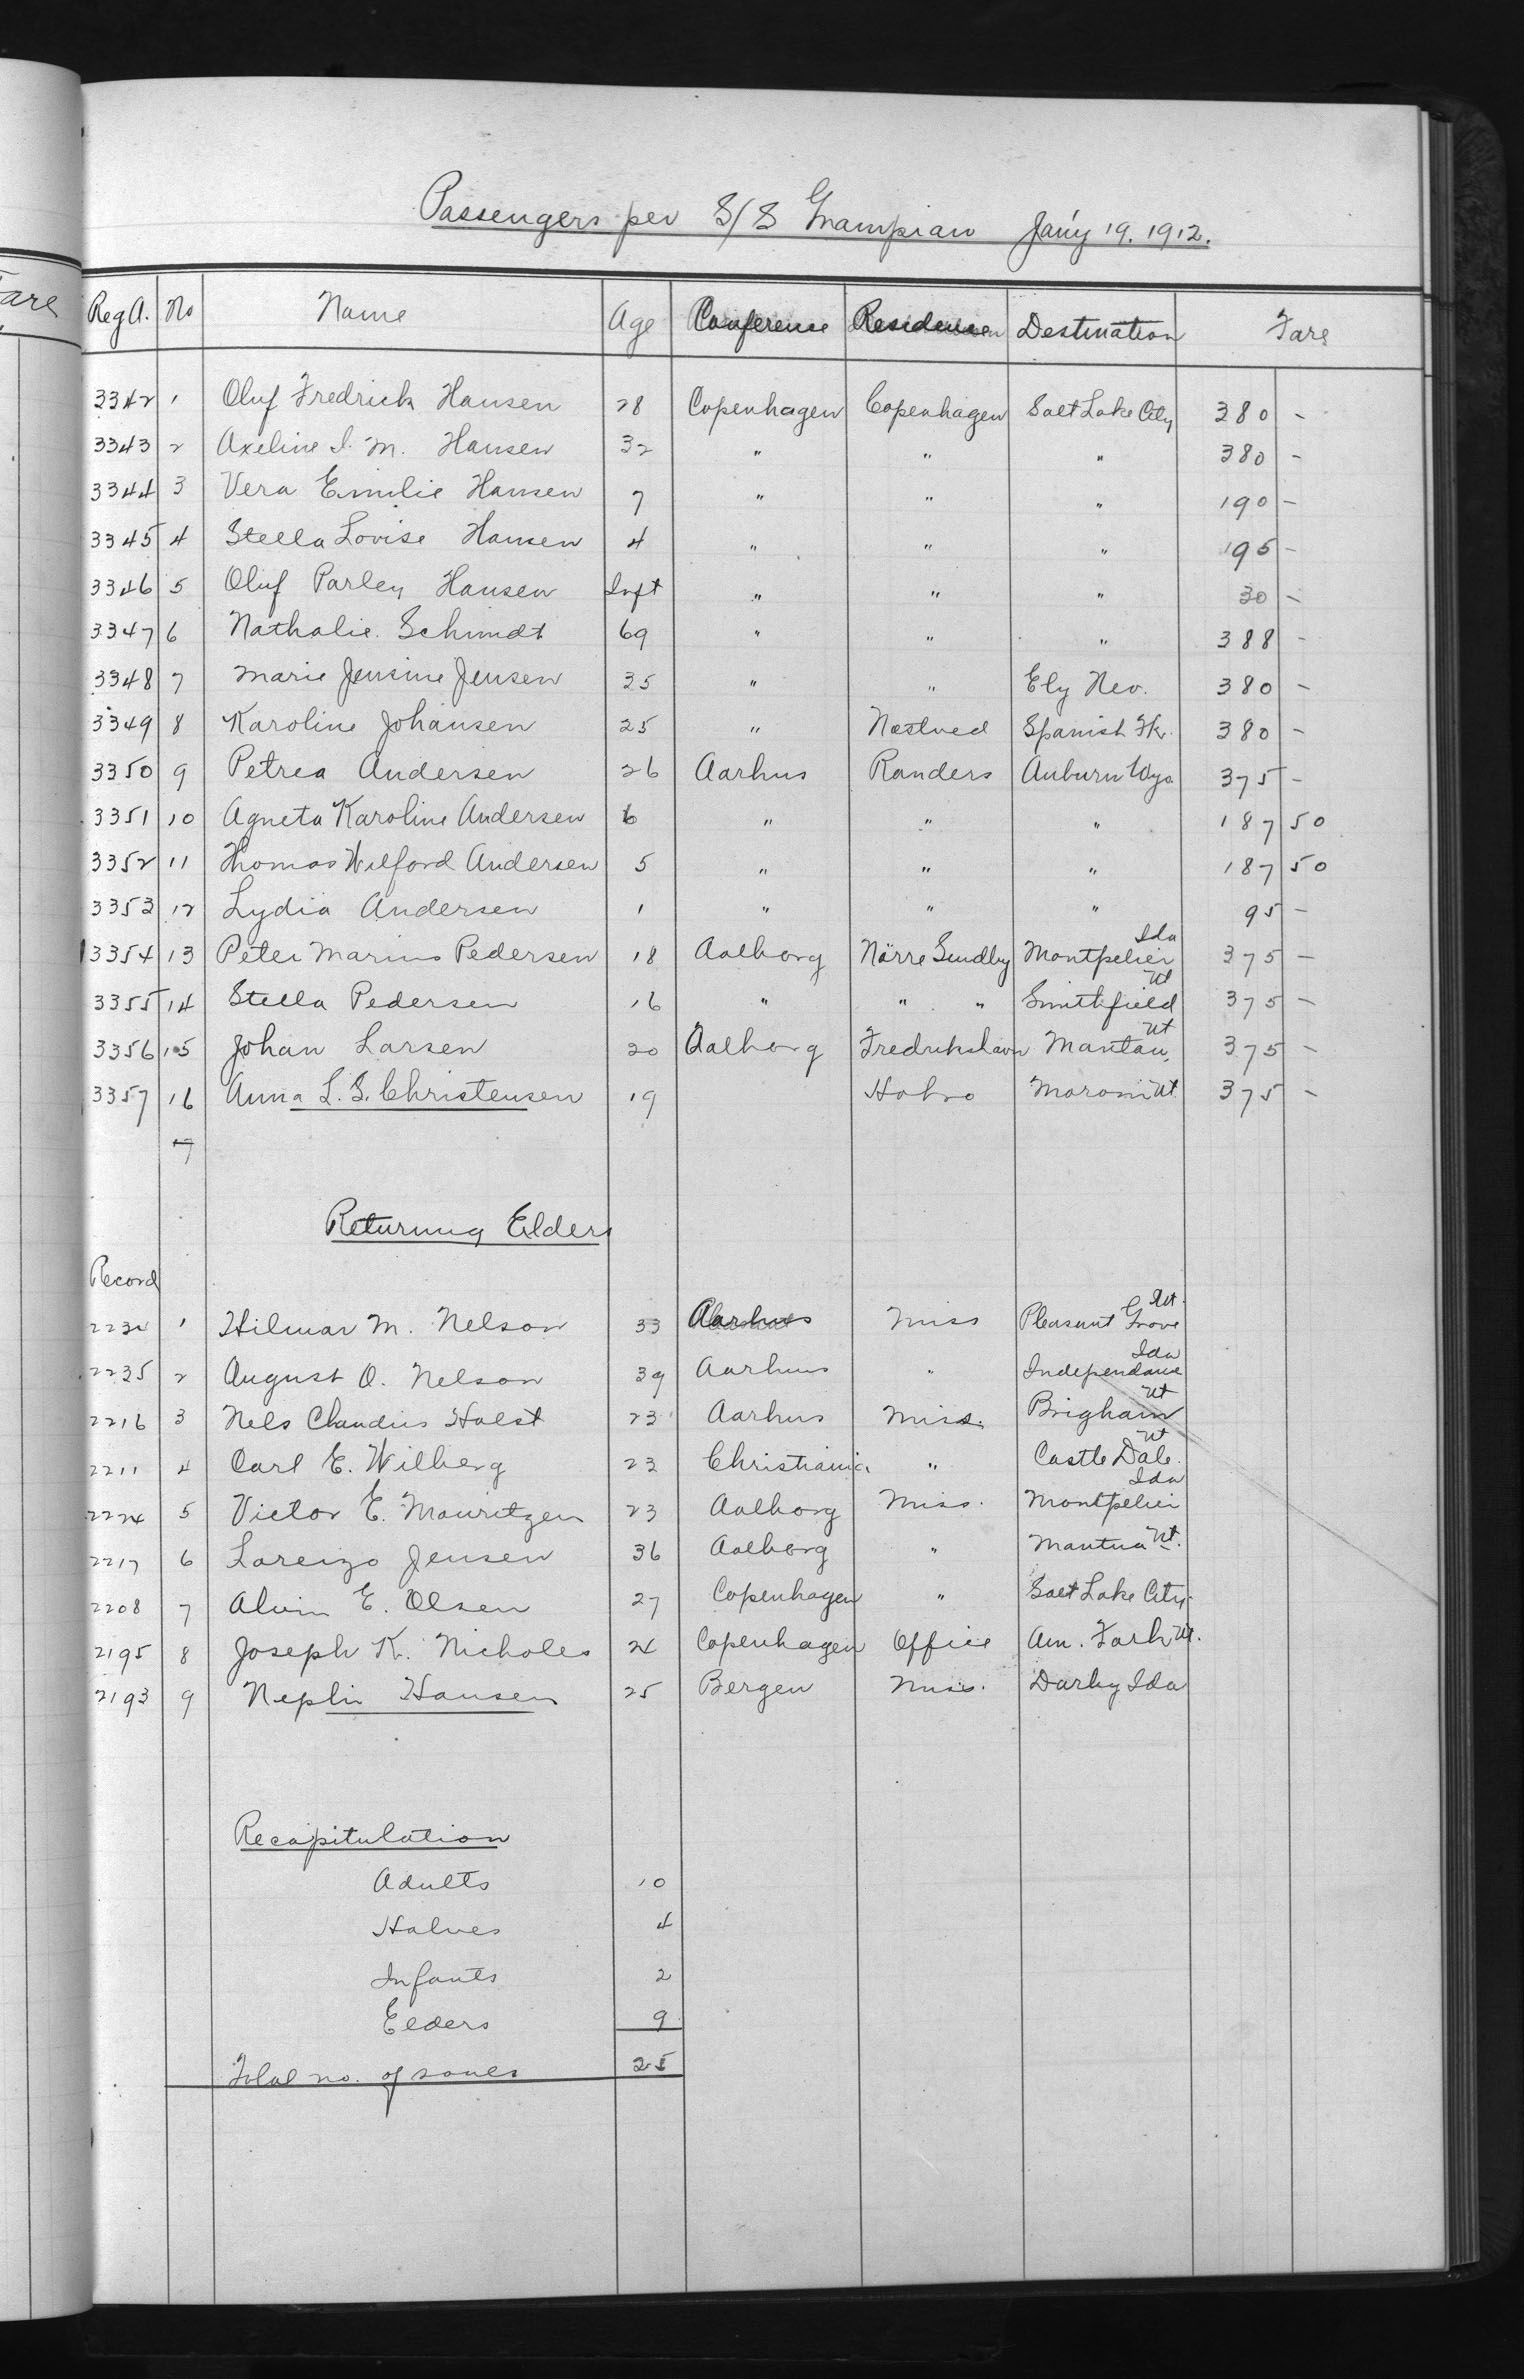 Passengers per S/S Grampian Jan'y 19. 1912.
are
Reg A. No Name Age Conference Residence Destination Fare
3342 1 Oluf Fredrick Hansen 28 Copenhagen Copenhagen Salt Lake City 380 -
3343 2 Axeline I. M. Hansen 32 " " " 380 -
3344 3 Vera Emilie Hansen 7 " " " 190 -
3345 4 Stella Lovise Hansen 4 " " " 195 -
3346 5 Oluf Parley Hansen Inft " " " 30 -
3347 6 Nathalie Schmidt 69 " " " 388 -
3348 7 Marie Jensine Jensen 35 " " Ely Nev. 380 -
3349 8 Karoline Johansen 25 " Næstved Spanish Fk. 380 -
3350 9 Petrea Andersen 26 Aarhus Randers Auburn Wyo 375 -
3351 10 Agneta Karoline Andersen 6 " " " 187 50
3352 11 Thomas Wilford Andersen 5 " " " 187 50
3353 12 Lydia Andersen 1 " " " 95 -
3354 13 Peter Marius Pedersen 18 Aalborg Nörre Sundby Montpelier Ida 375 -
3355 14 Stella Pedersen 16 " " " Smithfield Ut 375 -
3356 15 Johan Larsen 20 Aalborg Fredrikshavn Mantau, Ut 375 -
3357 16 Anna L. S. Christensen 19 Hobro Moroni Ut 375 -
7
Returning Elders
Record
1 Hilmar M. Nelson 33 Aarhus Miss Pleasant Grove Ut.
2235 2 August O. Nelson 39 Aarhus " Independance Ida
2216 3 Nels Claudius Holst 23 Aarhus Miss. Brigham Ut
2211 4 Carl E. Wilberg 23 Christiania " Castle Dale. Ut
2224 5 Victor E. Mouritzen 23 Aalborg Miss. Montpelier Ida
2217 6 Lorenzo Jensen 36 Aalborg " Mantua Ut.
2208 7 Alvin E. Olsen 27 Copenhagen " Salt Lake City
2195 8 Joseph K. Nicholes 24 Copenhagen Office Am. Fork Ut.
2193 9 Nephi Hansen 25 Bergen Miss. Darby Ida
Recapitulation
Adults 10
Halves 4
Infants 2
Elders 9
Total no. of soules 25